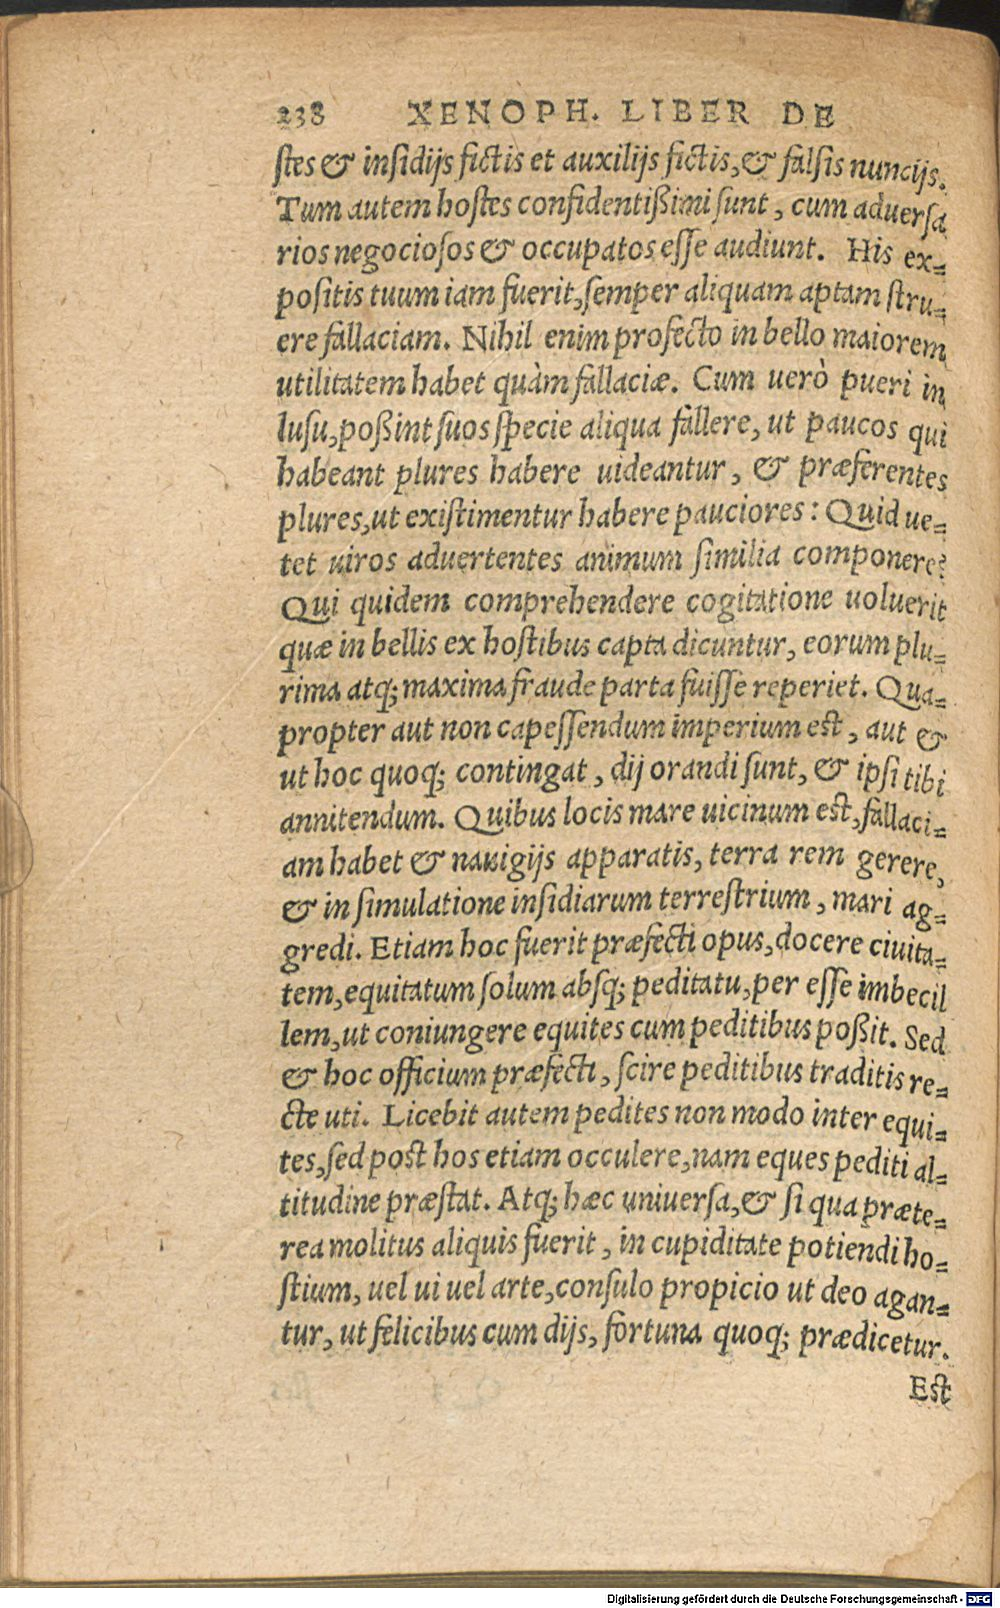 238 XENOPH. LIBER DE
stes & insidijs fictis et auxilijs fictis, & falsis nuncijs.
Tum autem hostes confidentißimi sunt, cum aduersa
rios negociosos & occupatos esse audiunt. His ex-
positis tuum iam fuerit, semper aliquam aptam stru-
ere fallaciam. Nihil enim profecto in bello maiorem
utilitatem habet quàm fallaciæ. Cum uerò pueri in
lusu, poßint suos specie aliqua fallere, ut paucos qui
habeant plures habere uideantur, & præferentes
plures, ut existimentur habere pauciores: Quid ue-
tet uiros aduertentes animum similia componere?
Qui quidem comprehendere cogitatione uoluerit
quæ in bellis ex hostibus capta dicuntur, eorum plu-
rima atq; maxima fraude parta fuisse reperiet. Qua-
propter aut non capessendum imperium est, aut &
ut hoc quoq; contingat, dij orandi sunt, & ipsi tibi
annitendum. Quibus locis mare uicinum est, fallaci-
am habet & nauigijs apparatis, terra rem gerere,
& in simulatione insidiarum terrestrium, mari ag-
gredi. Etiam hoc fuerit præfecti opus, docere ciuita-
tem, equitatum solum absq; peditatu, per esse imbecil
lem, ut coniungere equites cum peditibus poßit. Sed
& hoc officium præfecti, scire peditibus traditis re-
cte uti. Licebit autem pedites non modo inter equi-
tes, sed post hos etiam occulere, nam eques pediti al-
titudine præstat. Atq; hæc uniuersa, & si qua præte-
rea molitus aliquis fuerit, in cupiditate potiendi ho-
stium, uel ui uel arte, consulo propicio ut deo agan-
tur, ut felicibus cum dijs, fortuna quoq; prædicetur.
Est
Digitalisierung gefördert durch die Deutsche Forschungsgemeinschaft - DFG